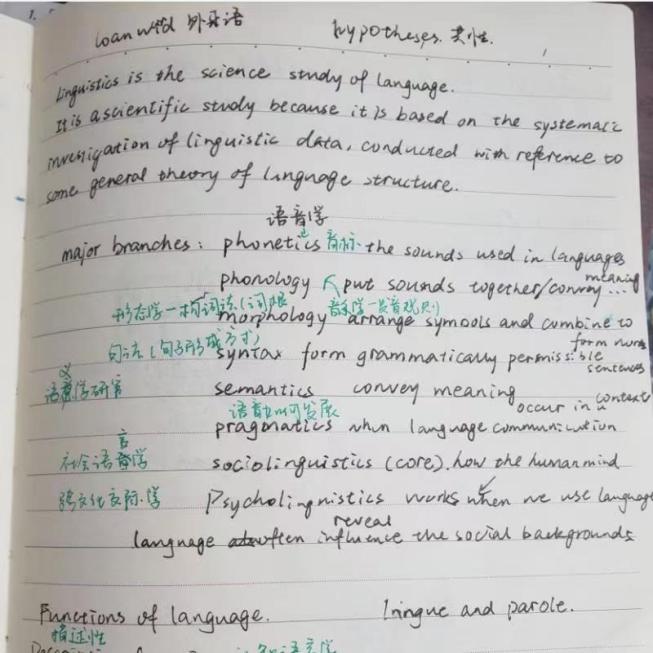 loan word 外来语 hypotheses. 共性.
Linguistics is the science study of language.
It is a scientific study because it is based on the systematic
investigation of linguistic data, conducted with reference to
some general theory of language structure.
语音学
major branches: phonetics 音标 the sounds used in languages
phonology put sounds together/convey meaning ...
形态学—构词法(词根 音系学—发音规则)
morphology arrange symbols and combine to
form words
句法(句子形成方式)
syntax form grammatically permissible
sentences
语义学研究 semantics convey meaning
语言如何发展 occur in a context
pragmatics when language communication
社会语言学 sociolinguistics (core). how the human mind
跨文化交际学 Psycholingnistics works when we use language
reveal
language often influence the social backgrounds
Functions of language. lingue and parole.
描述性